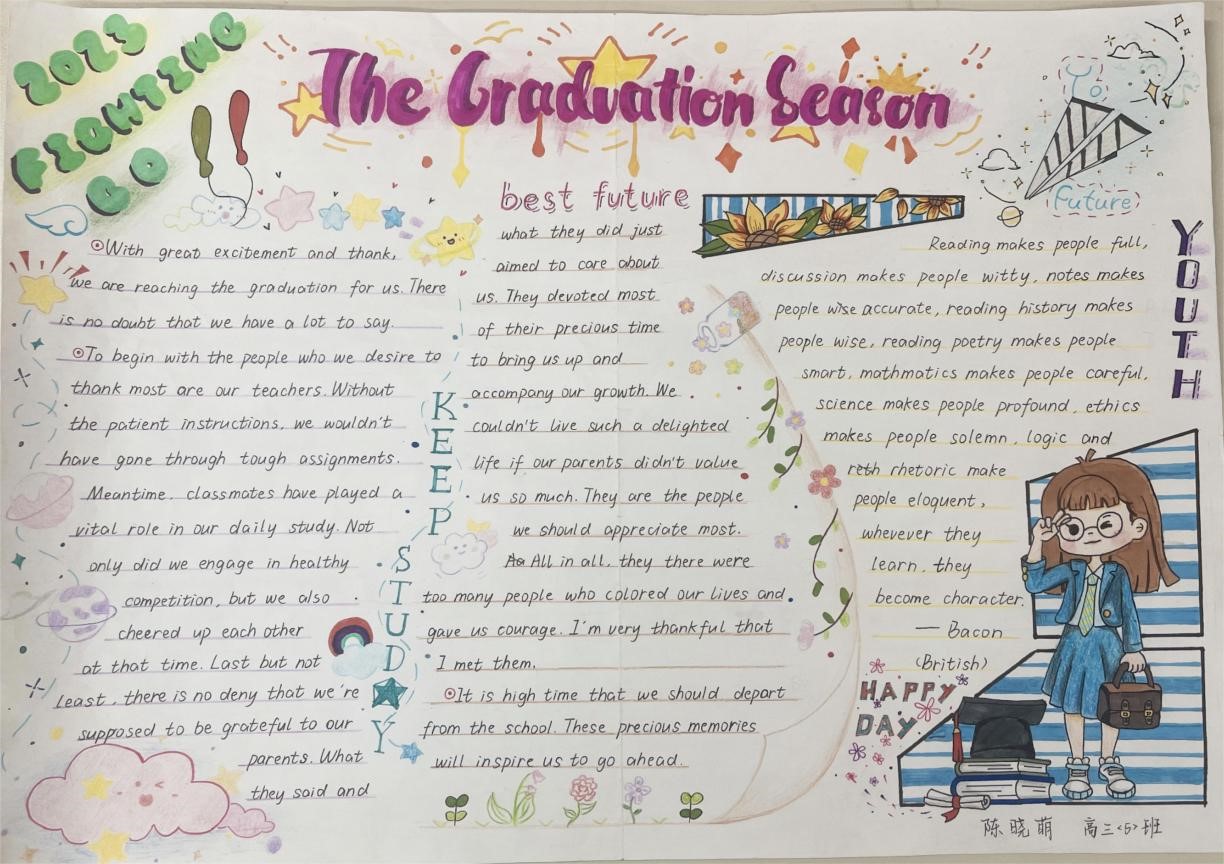 2023
FIGHTING
GO
The Graduation Season
To
Future
With great excitement and thank,
we are reaching the graduation for us. There
is no doubt that we have a lot to say.
To begin with the people who we desire to
thank most are our teachers. Without
the patient instructions, we wouldn't
have gone through tough assignments.
Meantime, classmates have played a
vital role in our daily study. Not
only did we engage in healthy
competition, but we also
cheered up each other
at that time. Last but not
least, there is no deny that we're
supposed to be grateful to our
parents. What
they said and
KEEP
STUDY
best future
what they did just
aimed to care about
us. They devoted most
of their precious time
to bring us up and
accompany our growth. We
couldn't live such a delighted
life if our parents didn't value
us so much. They are the people
we should appreciate most.
All in all, they there were
too many people who colored our lives and
gave us courage. I'm very thankful that
I met them.
It is high time that we should depart
from the school. These precious memories
will inspire us to go ahead.
Reading makes people full,
discussion makes people witty, notes makes
people wise accurate, reading history makes
people wise, reading poetry makes people
smart, mathmatics makes people careful,
science makes people profound, ethics
makes people solemn, logic and
rhetoric make
people eloquent,
whevever they
learn, they
become character.
— Bacon
(British)
YOUTH
HAPPY
DAY
陈晓萌 高三<5>班